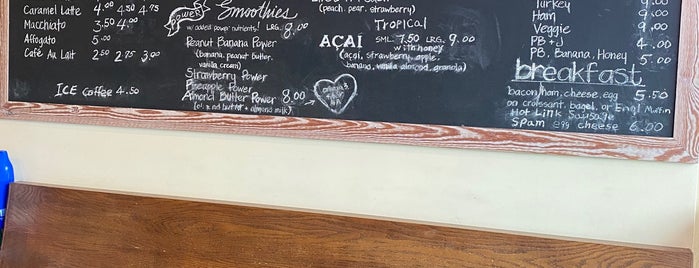 Caramel Latte 4.00 4.50 4.75
Macchiato 3.50 4.00
Affogato 5.00
Café Au Lait 2.50 2.75 3.00
ICE Coffee 4.50
Power Smoothies
w/ added power nutrients! LRG. 8.00
Peanut Banana Power
(banana, peanut butter,
vanilla cream)
Strawberry Power
Pineapple Power
Almond Butter Power 8.00
almond milk)
(peach, pear, strawberry)
Tropical
AÇAI SML. 7.50 LRG. 9.00
with honey
(açai, strawberry, apple,
banana, vanilla almond, granola)
Turkey 9.00
Ham 9.00
Veggie 9.00
PB + J 4.00
PB, Banana, Honey 5.00
breakfast
bacon/ham, cheese, egg 5.50
on croissant, bagel, or Engl Muffin
Hot Link Sausage
Spam egg cheese 6.00